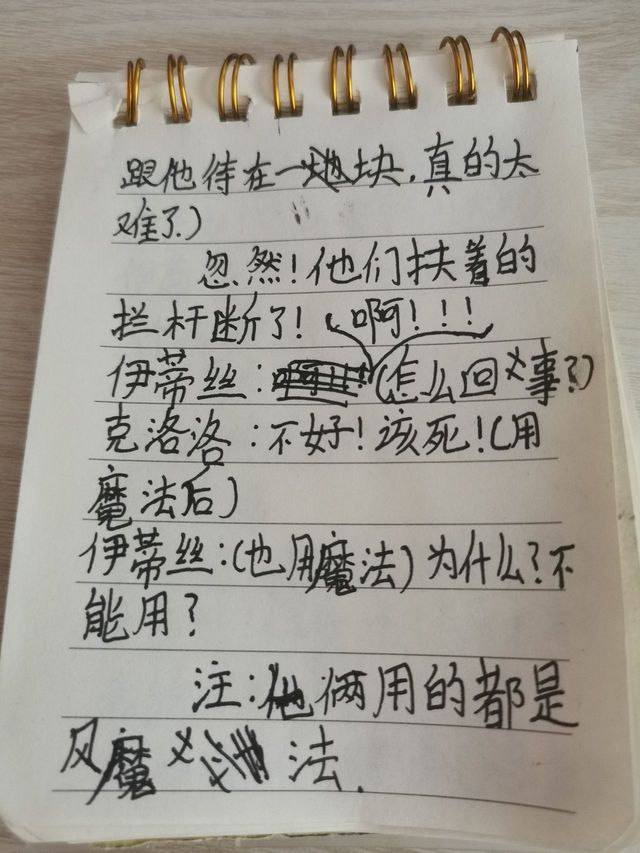 跟他待在一块,真的太
难了)
忽然!他们扶着的
拦杆断了!
啊!!!
伊蒂丝:(怎么回事?)
克洛洛:不好!该死!(用
魔法后)
伊蒂丝:(也用魔法)为什么?不
能用?
注:他俩用的都是
风魔法.